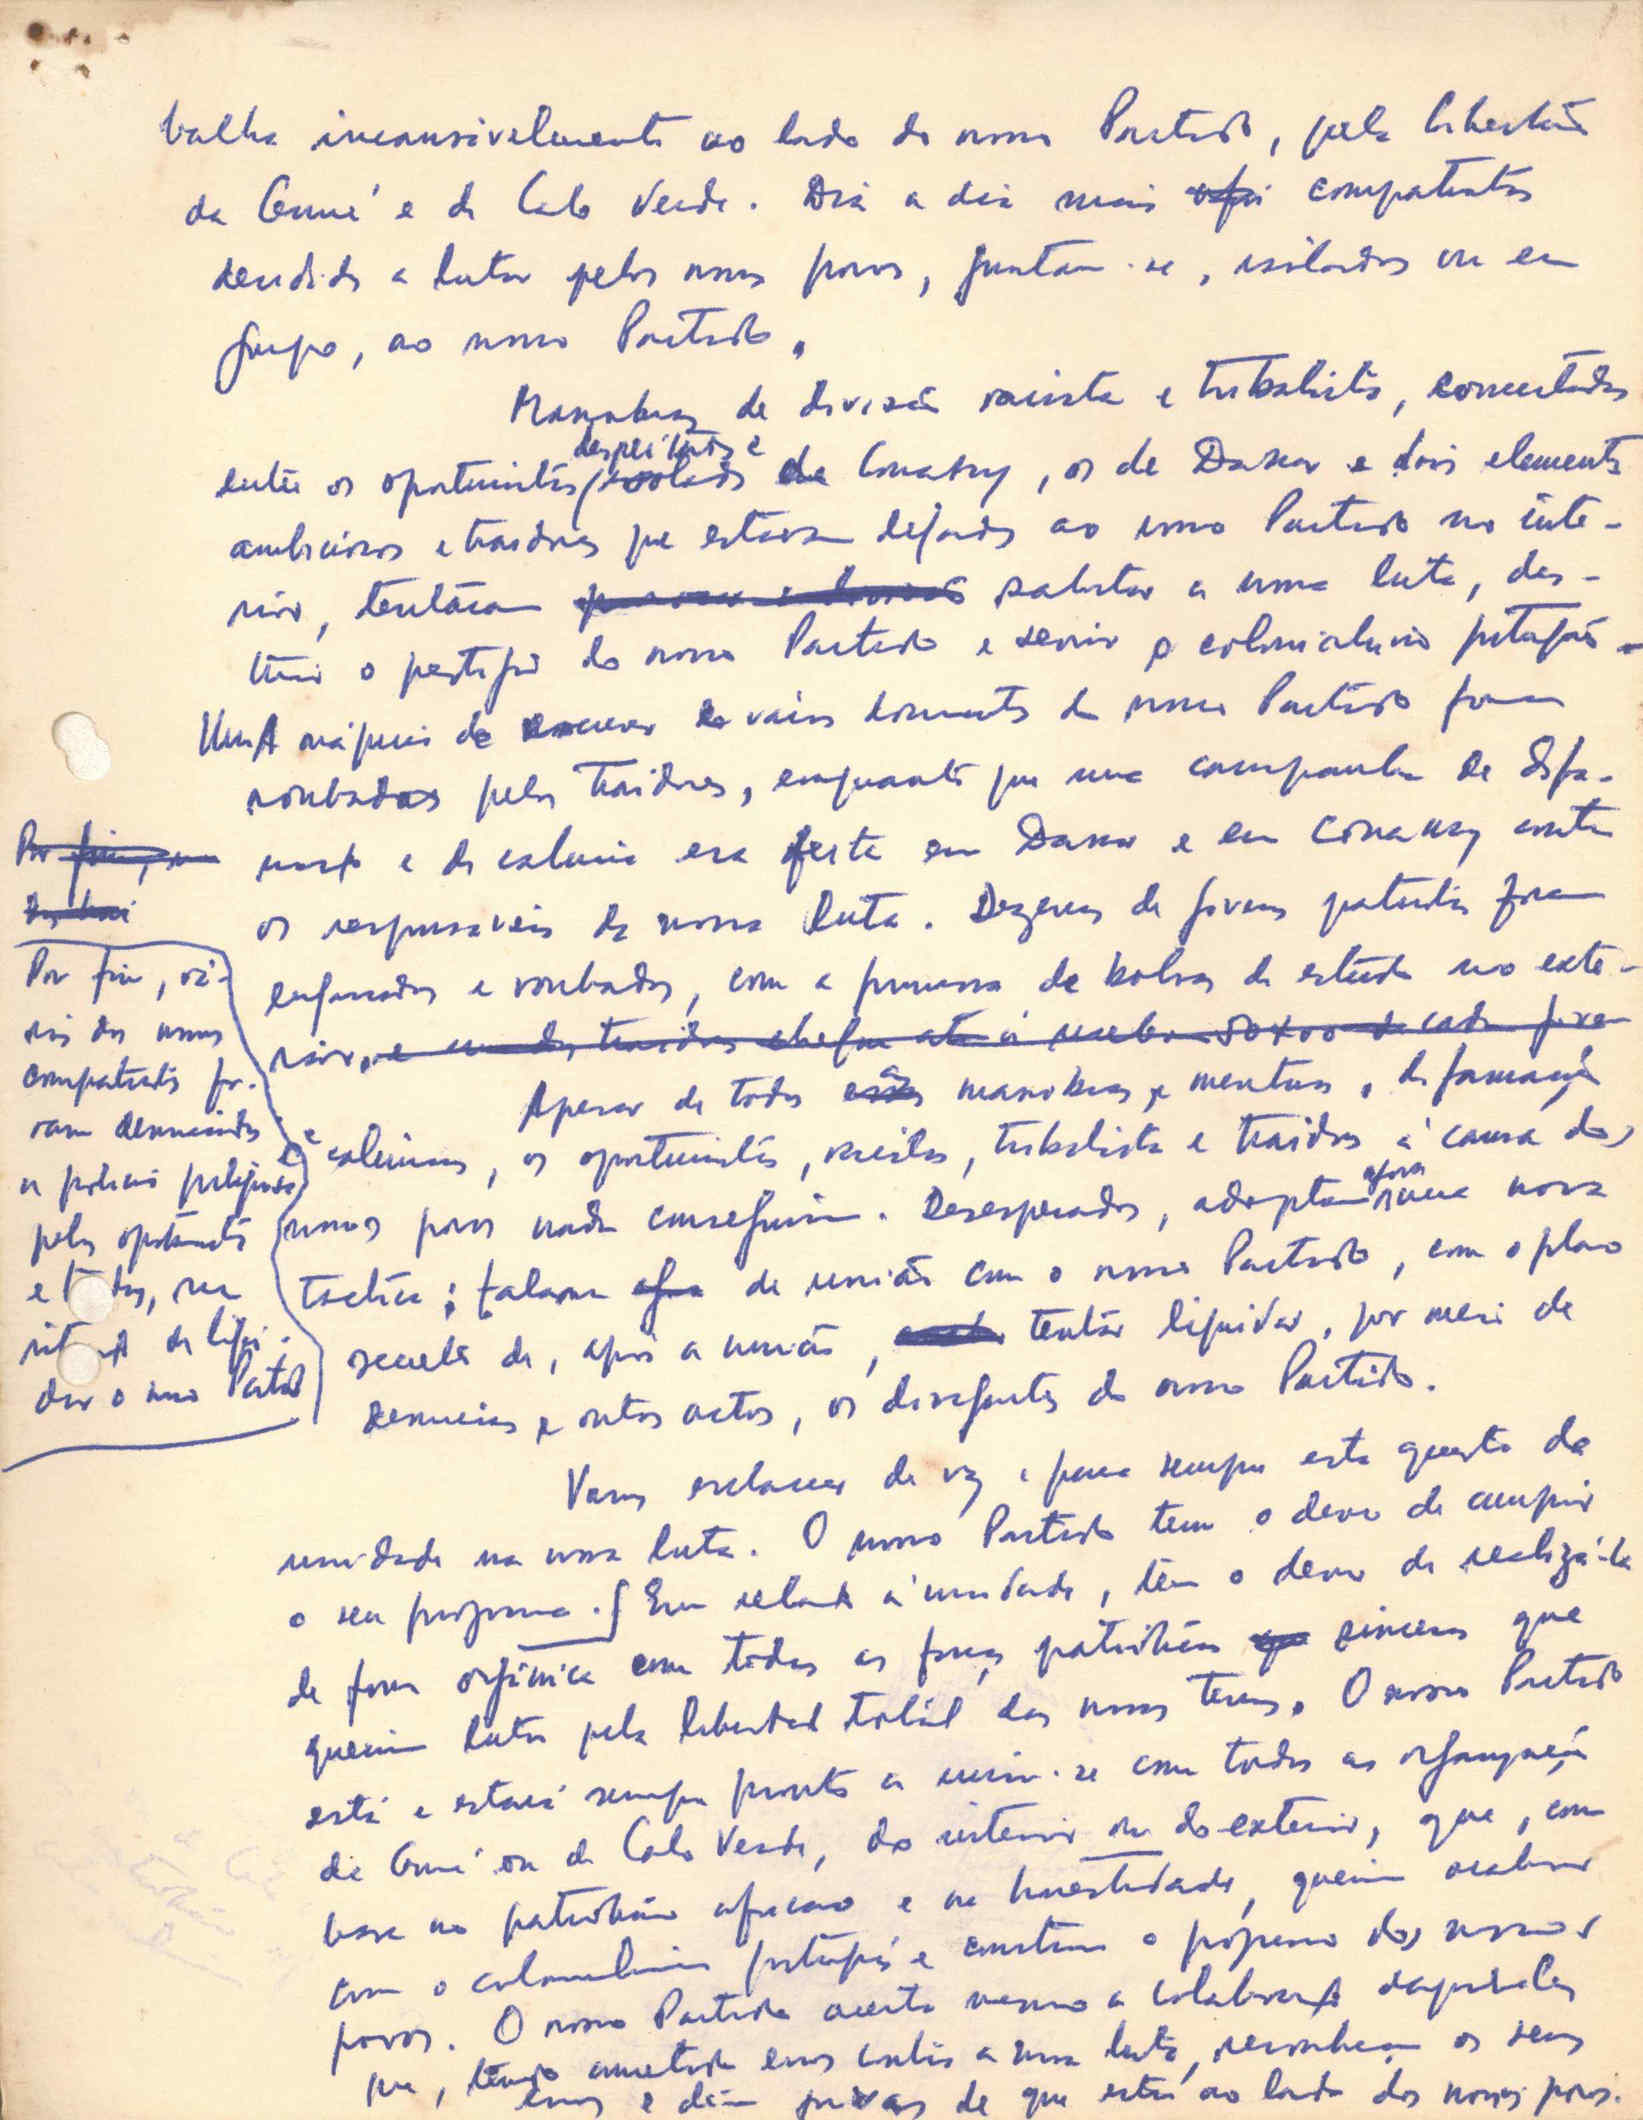 balha incansavelmente ao lado do nosso Partido, pela libertação
da Guiné e de Cabo Verde. Dia a dia mais compatriotas
decididos a lutar pelos nossos povos, juntam-se, isolados ou em
grupo, ao nosso Partido.
Manobras de divisão racista e tribalista, concertadas
entre os oportunistas despeitados e de Conakry, os de Dakar e dois elementos
ambiciosos e traidores que estavam ligados ao nosso Partido no inte-
rior, tentaram sabotar a nossa luta, des-
truir o prestígio do nosso Partido e servir o colonialismo português.
Uma máquina de escrever e vários documentos do nosso Partido foram
roubados pelos traidores, enquanto que uma campanha de difa-
mação e de calúnia era feita em Dakar e em Conakry contra
os responsáveis da nossa luta. Dezenas de jovens patriotas foram
enganados e roubados, com a promessa de bolsas de estudo no exte-
rior, e um dos traidores chegou até a receber de cada jovem
Por fim,
Por fim, vá-
rios dos nossos
compatriotas fo-
ram denunciados
à polícia portuguesa
pelos oportunistas
e, na
de liqui-
dar o nosso Partido
Apesar de todas as manobras, mentiras, difamações
e calúnias, os oportunistas, racistas, tribalistas e traidores à causa dos
nossos povos nada conseguiram. Desesperados, adoptam agora uma nova
táctica: falam de união com o nosso Partido, com o plano
secreto de, após a união, tentar liquidar, por meio de
denúncias e outros actos, os dirigentes do nosso Partido.
Vamos esclarecer de vez e para sempre esta questão da
unidade na nossa luta. O nosso Partido tem o dever de cumprir
o seu programa. Em relação à unidade, tem o dever de realizá-la
de forma orgânica com todas as forças patrióticas sinceras que
queiram lutar pela liberdade total das nossas terras. O nosso Partido
está e estará sempre pronto a unir-se com todas as organizações
da Guiné ou de Cabo Verde, do interior ou do exterior, que, com
base no patriotismo africano e na honestidade, queiram acabar
com o colonialismo português e construir o progresso dos nossos
povos. O nosso Partido aceita mesmo a colaboração daqueles
que, tendo cometido erros contra a nossa luta, reconheçam os seus
erros e dêem provas de que estão ao lado dos nossos povos.